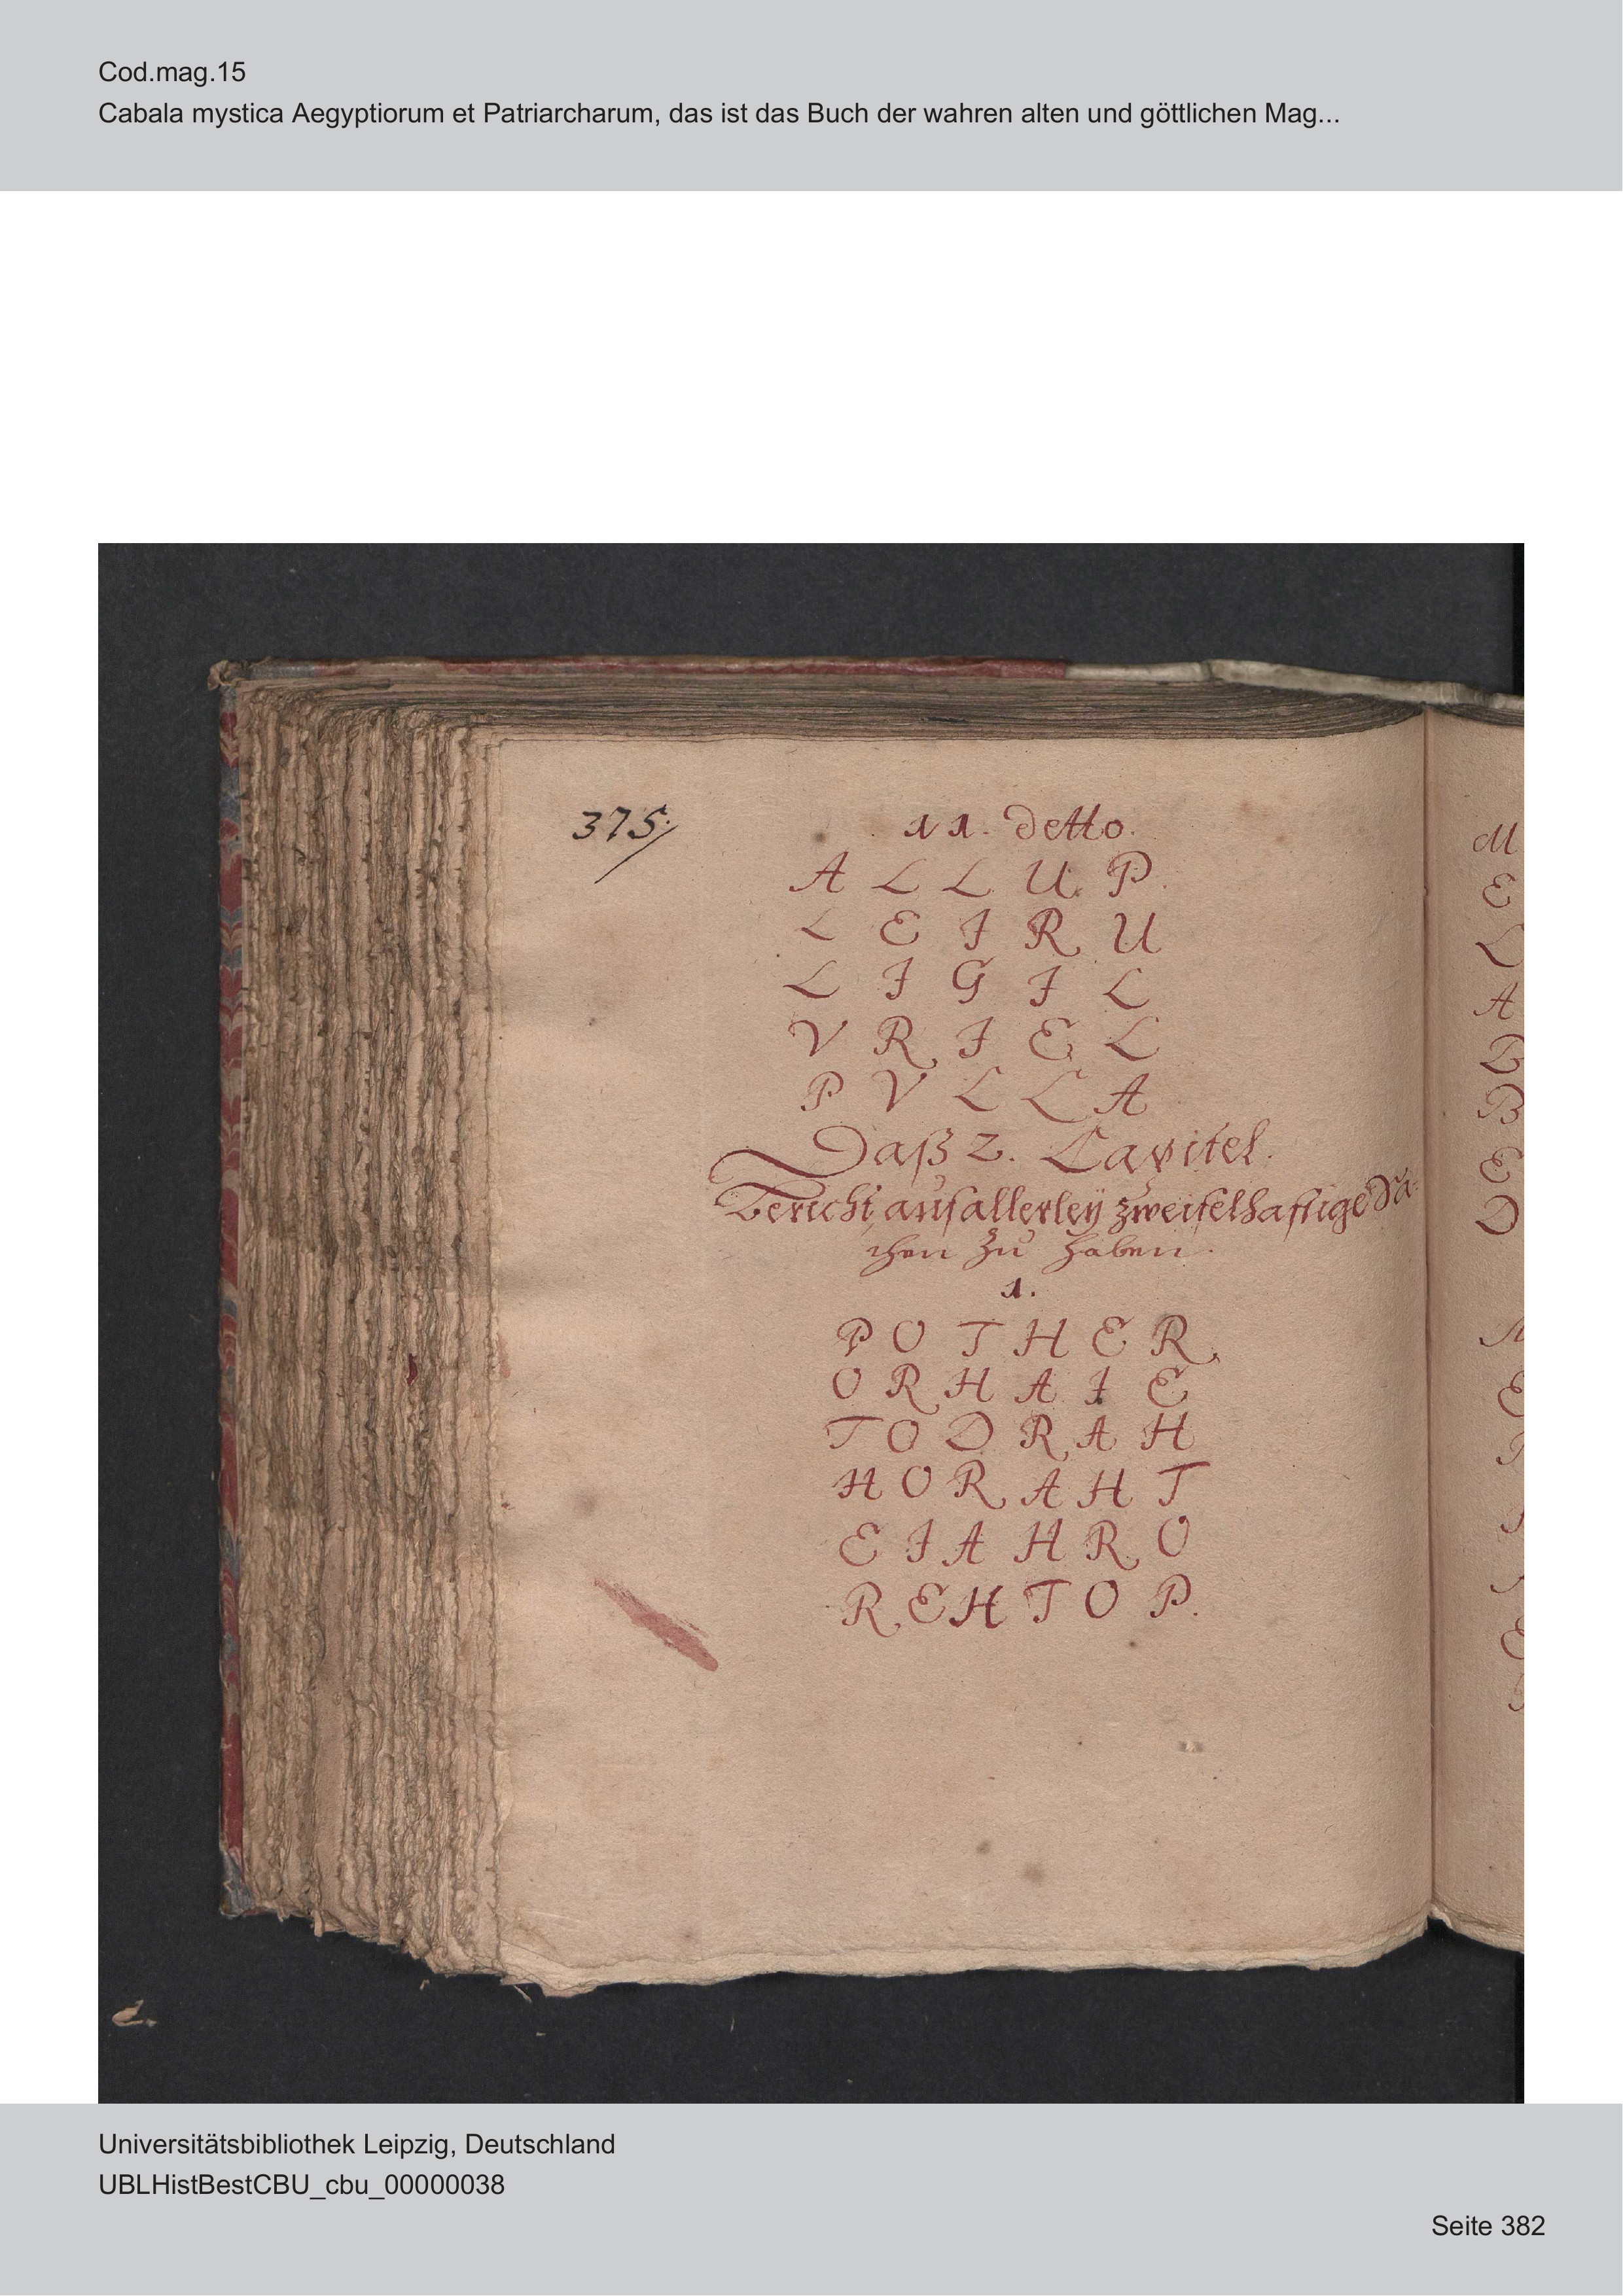 Cod.mag.15
Cabala mystica Aegyptiorum et Patriarcharum, das ist das Buch der wahren alten und göttlichen Mag...
375/
11. detto.
A L L U P
L E I R U
L I G I L
V R I E L
P V L L A
Daß 2. Capitel.
Bericht auf allerleÿ zweifelhaftige Sa-
chen zu haben.
1.
P O T H E R
O R H A I E
T O D R A H
H O R A H T
E I A H R O
R E H T O P.
M
E
L
A
B
B
E
D
Universitätsbibliothek Leipzig, Deutschland
UBLHistBestCBU_cbu_00000038
Seite 382